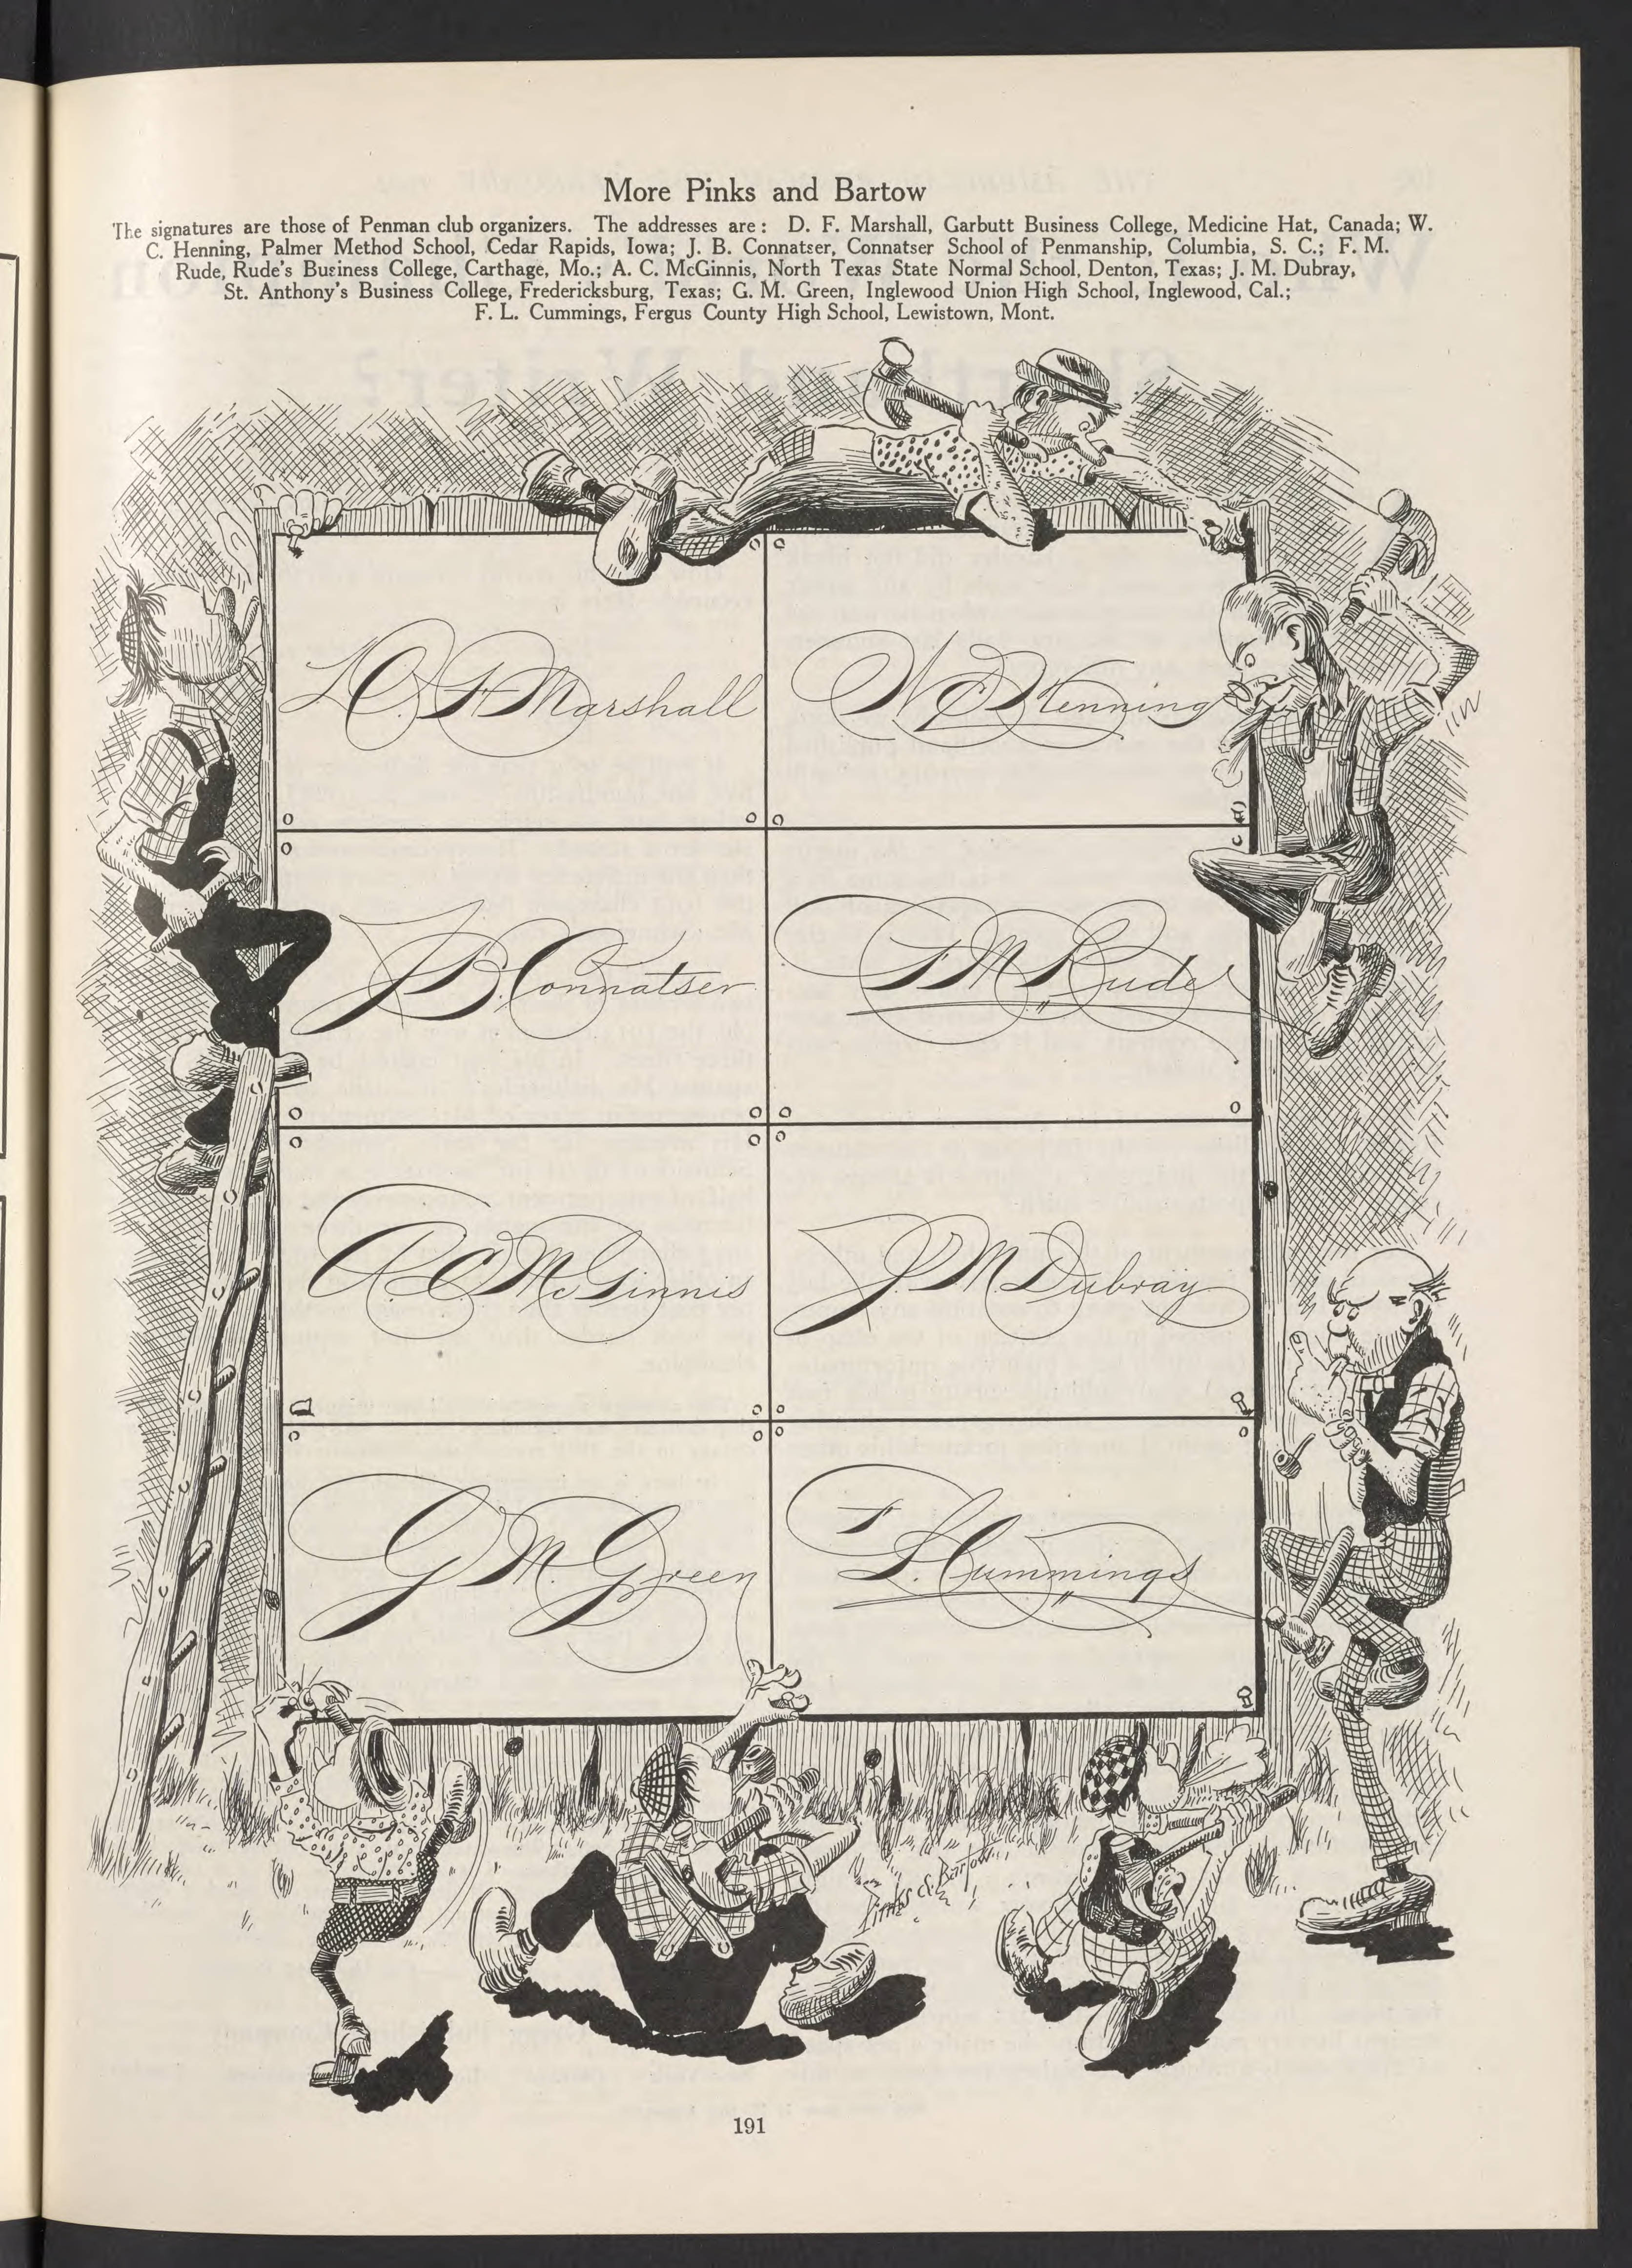 More Pinks and Bartow
The signatures are those of Penman club organizers. The addresses are: D. F. Marshall, Garbutt Business College, Medicine Hat, Canada; W.
C. Henning, Palmer Method School, Cedar Rapids, Iowa; J. B. Connatser, Connatser School of Penmanship, Columbia, S. C.; F. M.
Rude, Rude's Business College, Carthage, Mo.; A. C. McGinnis, North Texas State Normal School, Denton, Texas; J. M. Dubray,
St. Anthony's Business College, Fredericksburg, Texas; G. M. Green, Inglewood Union High School, Inglewood, Cal.;
F. L. Cummings, Fergus County High School, Lewistown, Mont.
D. F. Marshall
W C Henning
J B. Connatser
F M Rude
A C McGinnis
J. M Dubray
G M. Green
F L. Cummings
Pinks & Bartow
191